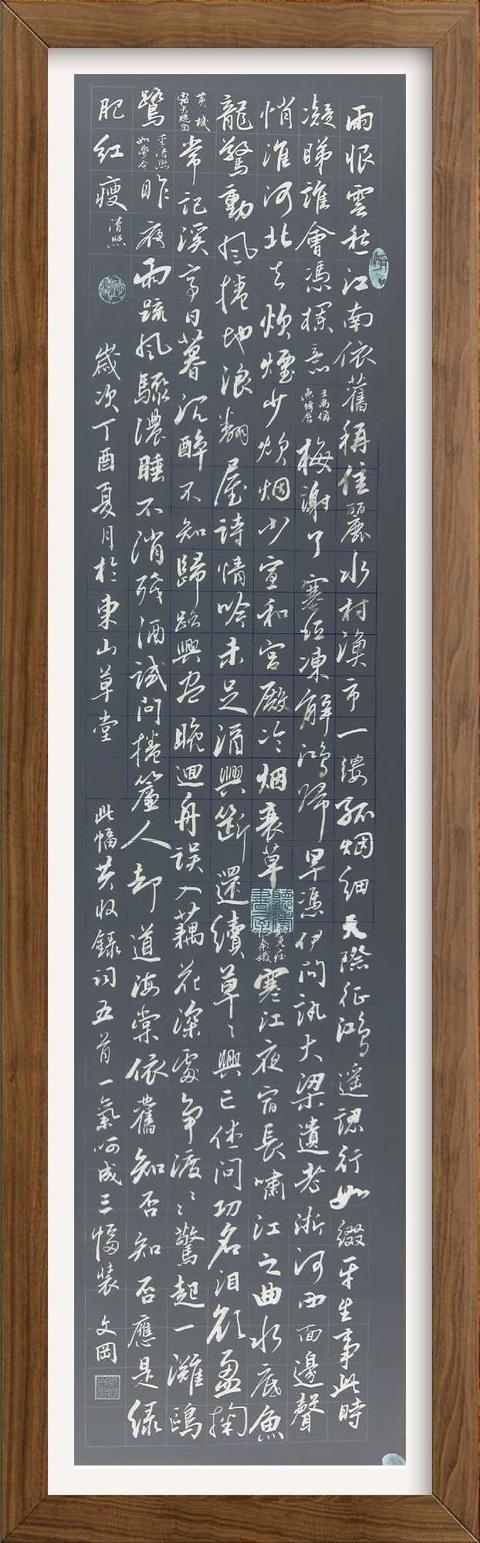 雨恨雲愁江南依舊稱佳麗水村漁市一縷孤烟細天際征鴻遙認行如綴平生事此時
凝睇誰會憑欄意 王禹偁 點絳唇 梅謝了塞垣凍解鴻歸早憑伊問訊大梁遺老淅河西面邊聲
悄淮河北去炊煙少炊烟少宣和宮殿冷烟衰草 秦娥 寒江夜宿長嘯江之曲水底魚
龍驚動風捲地浪翻屋詩情吟未足酒興斷還續草〻興亡休問功名泪欲盈掬
黃機 霜天曉角 常記溪亭日暮沉醉不知歸路興盡晚迴舟誤入藕花深處爭渡〻驚起一灘鷗
鷺 李清照 如夢令 昨夜雨疏風驟濃睡不消殘酒試問捲簾人卻道海棠依舊知否知否應是綠
肥紅瘦 清照 歲次丁酉夏月於東山草堂 此幅共收錄詞五首一氣呵成三幅裝 文岡